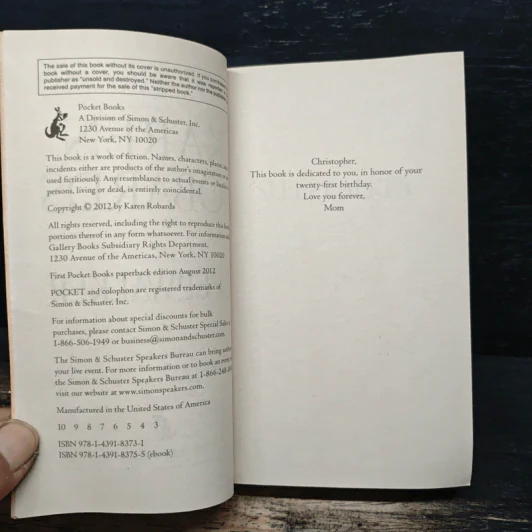 The sale of this book without its cover is unauthorized. If you purchased
book without a cover, you should be aware that it was reported
publisher as "unsold and destroyed." Neither the author nor the publisher
received payment for the sale of this "stripped book."
Pocket Books
A Division of Simon & Schuster, Inc.
1230 Avenue of the Americas
New York, NY 10020
This book is a work of fiction. Names, characters, places, and
incidents either are products of the author's imagination or are
used fictitiously. Any resemblance to actual events or locales
persons, living or dead, is entirely coincidental.
Copyright © 2012 by Karen Robards
All rights reserved, including the right to reproduce this book
portions thereof in any form whatsoever. For information
Gallery Books Subsidiary Rights Department,
1230 Avenue of the Americas, New York, NY 10020
First Pocket Books paperback edition August 2012
POCKET and colophon are registered trademarks of
Simon & Schuster, Inc.
For information about special discounts for bulk
purchases, please contact Simon & Schuster Special Sales
1-866-506-1949 or business@simonandschuster.com.
The Simon & Schuster Speakers Bureau can bring
your live event. For more information or to book an event
the Simon & Schuster Speakers Bureau at 1-866-248-
visit our website at www.simonspeakers.com.
Manufactured in the United States of America
10 9 8 7 6 5 4 3
ISBN 978-1-4391-8373-1
ISBN 978-1-4391-8375-5 (ebook)
Christopher,
This book is dedicated to you, in honor of your
twenty-first birthday.
Love you forever,
Mom